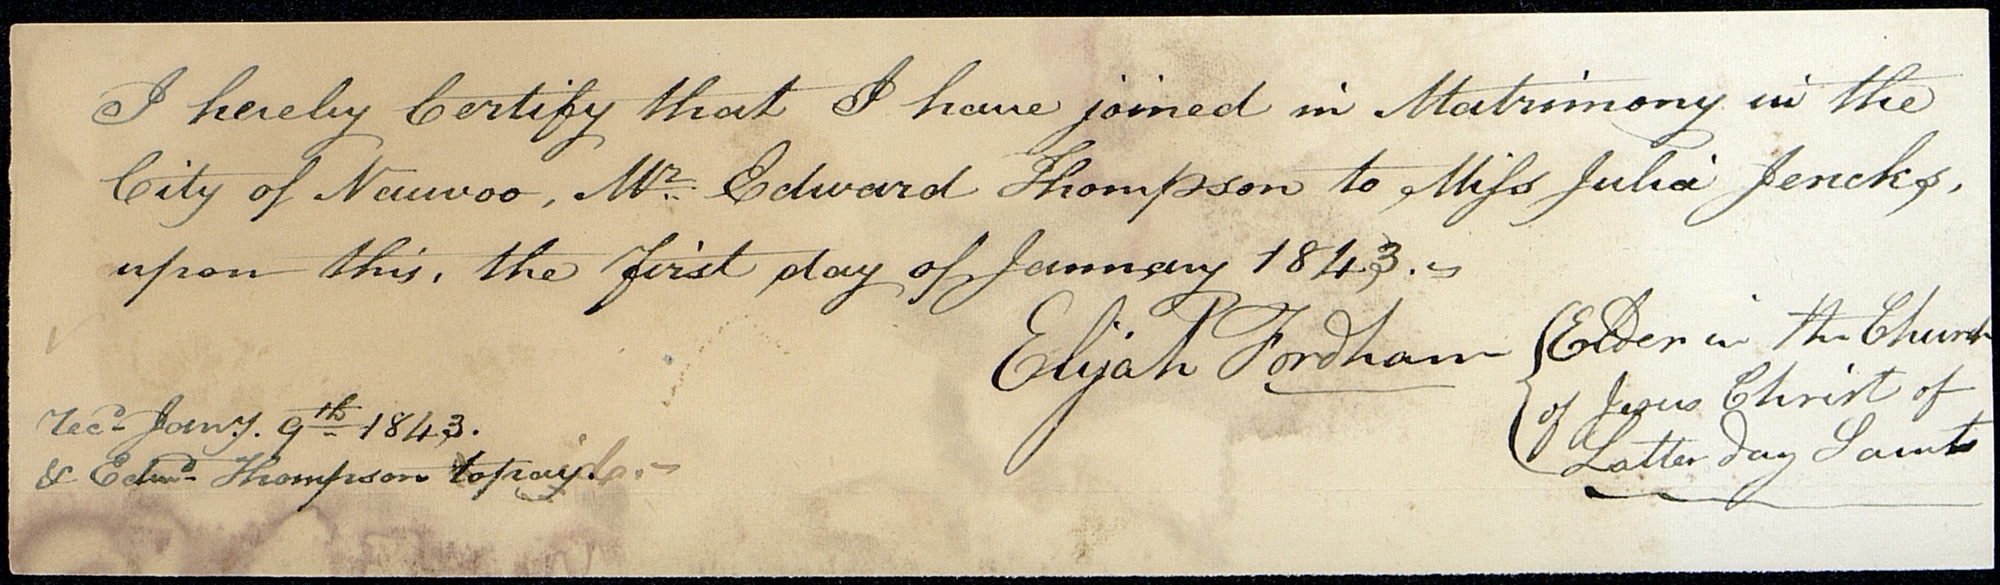 I hereby Certify that I have joined in Matrimony in the
City of Nauvoo, Mr. Edward Thompson to Miss Julia Jencks,
upon this, the first day of January 1843.
Elijah Fordham
Elder in the Church
of Jesus Christ of
Latter day Saints
Recd Jany. 9th 1843.
& Edwd Thompson to pay.